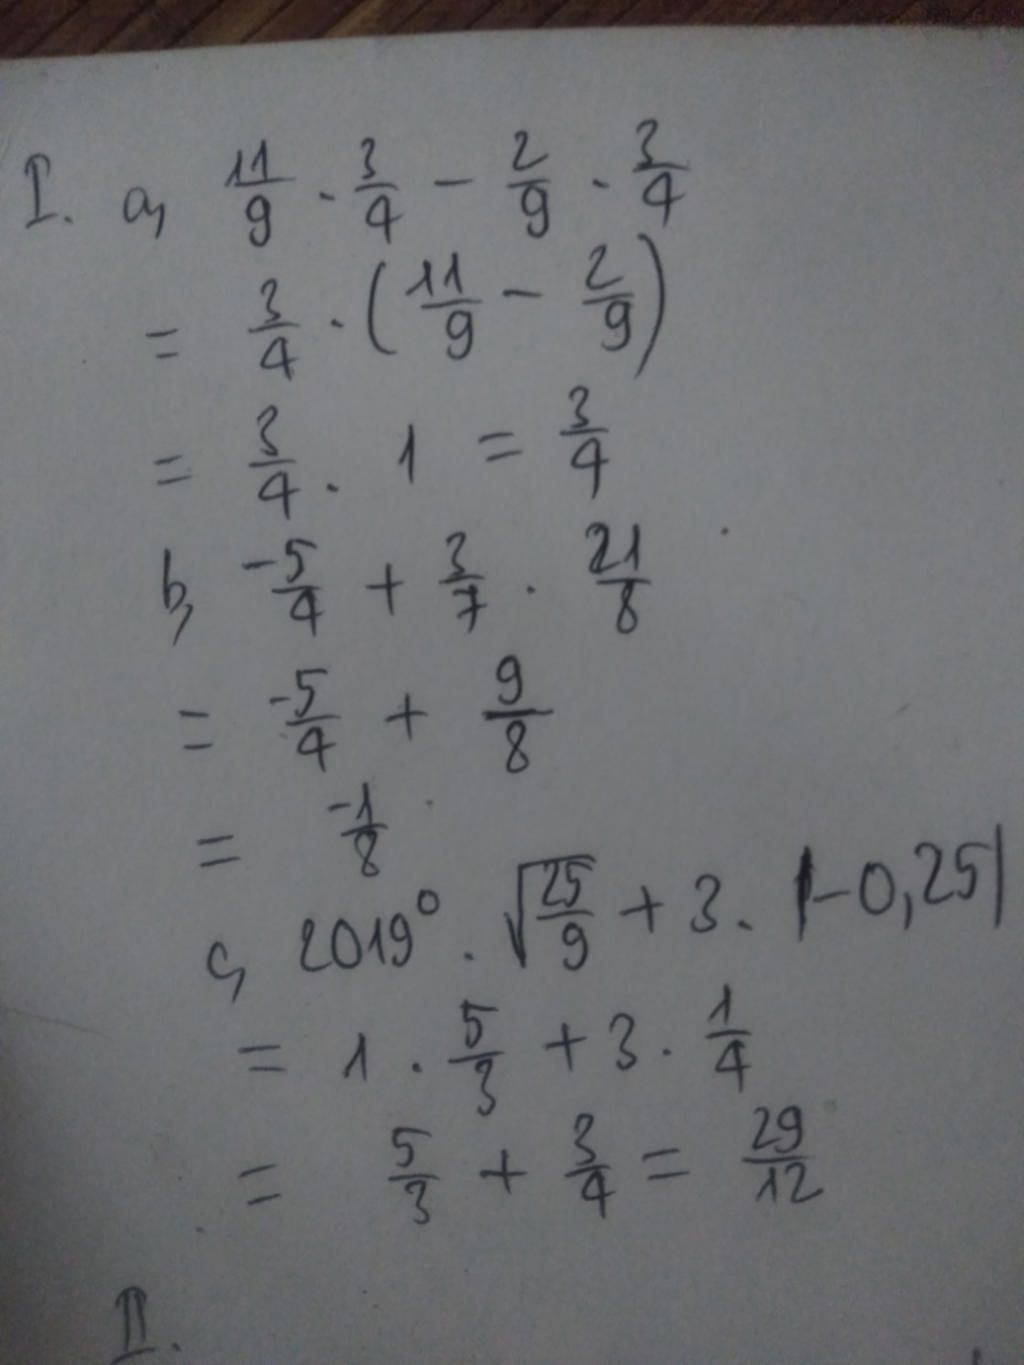 I. a, 11/9 . 3/4 - 2/9 . 3/4
= 3/4 . (11/9 - 2/9)
= 3/4 . 1 = 3/4
b, -5/4 + 3/7 . 21/8
= -5/4 + 9/8
= -1/8
c, 2019⁰ . √(25/9) + 3 . |-0,25|
= 1 . 5/3 + 3 . 1/4
= 5/3 + 3/4 = 29/12
II.